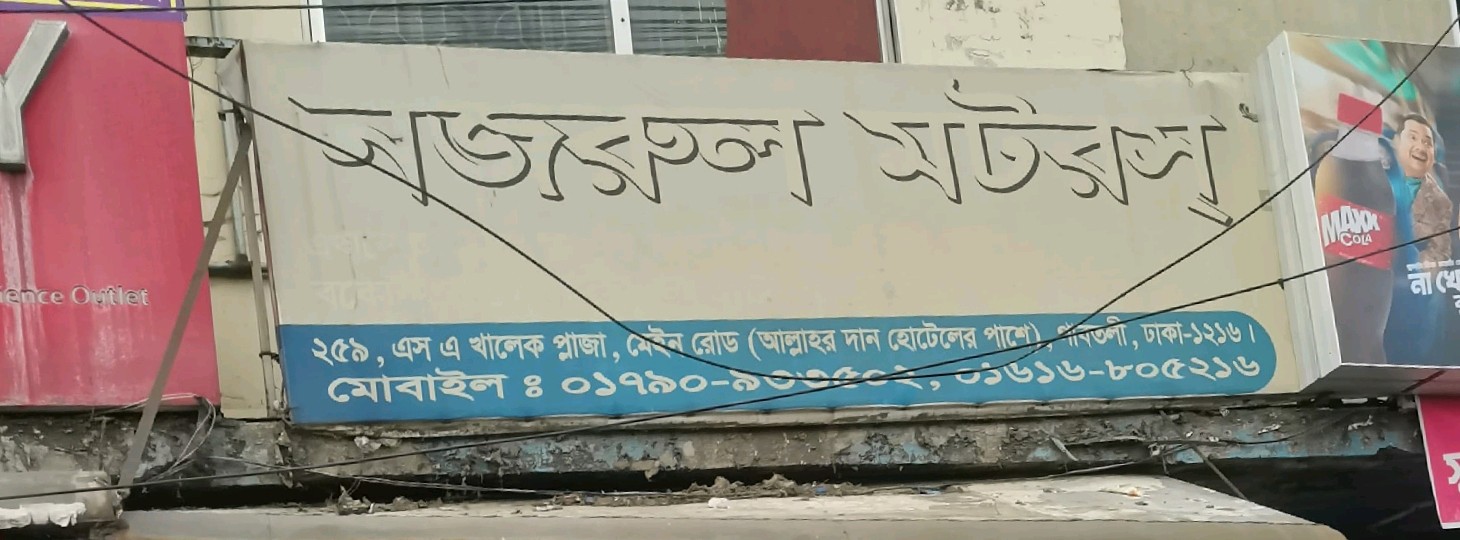 Y
ience Outlet
নজরুল মটরস্
২৫৯, এস এ খালেক প্লাজা, মেইন রোড (আল্লাহর দান হোটেলের পাশে), গাবতলী, ঢাকা-১২১৬।
মোবাইল ঃ ০১৭৯০-৯৩৩৫০২, ০১৬১৬-৮০৫২১৬
MAXX
COLA
না